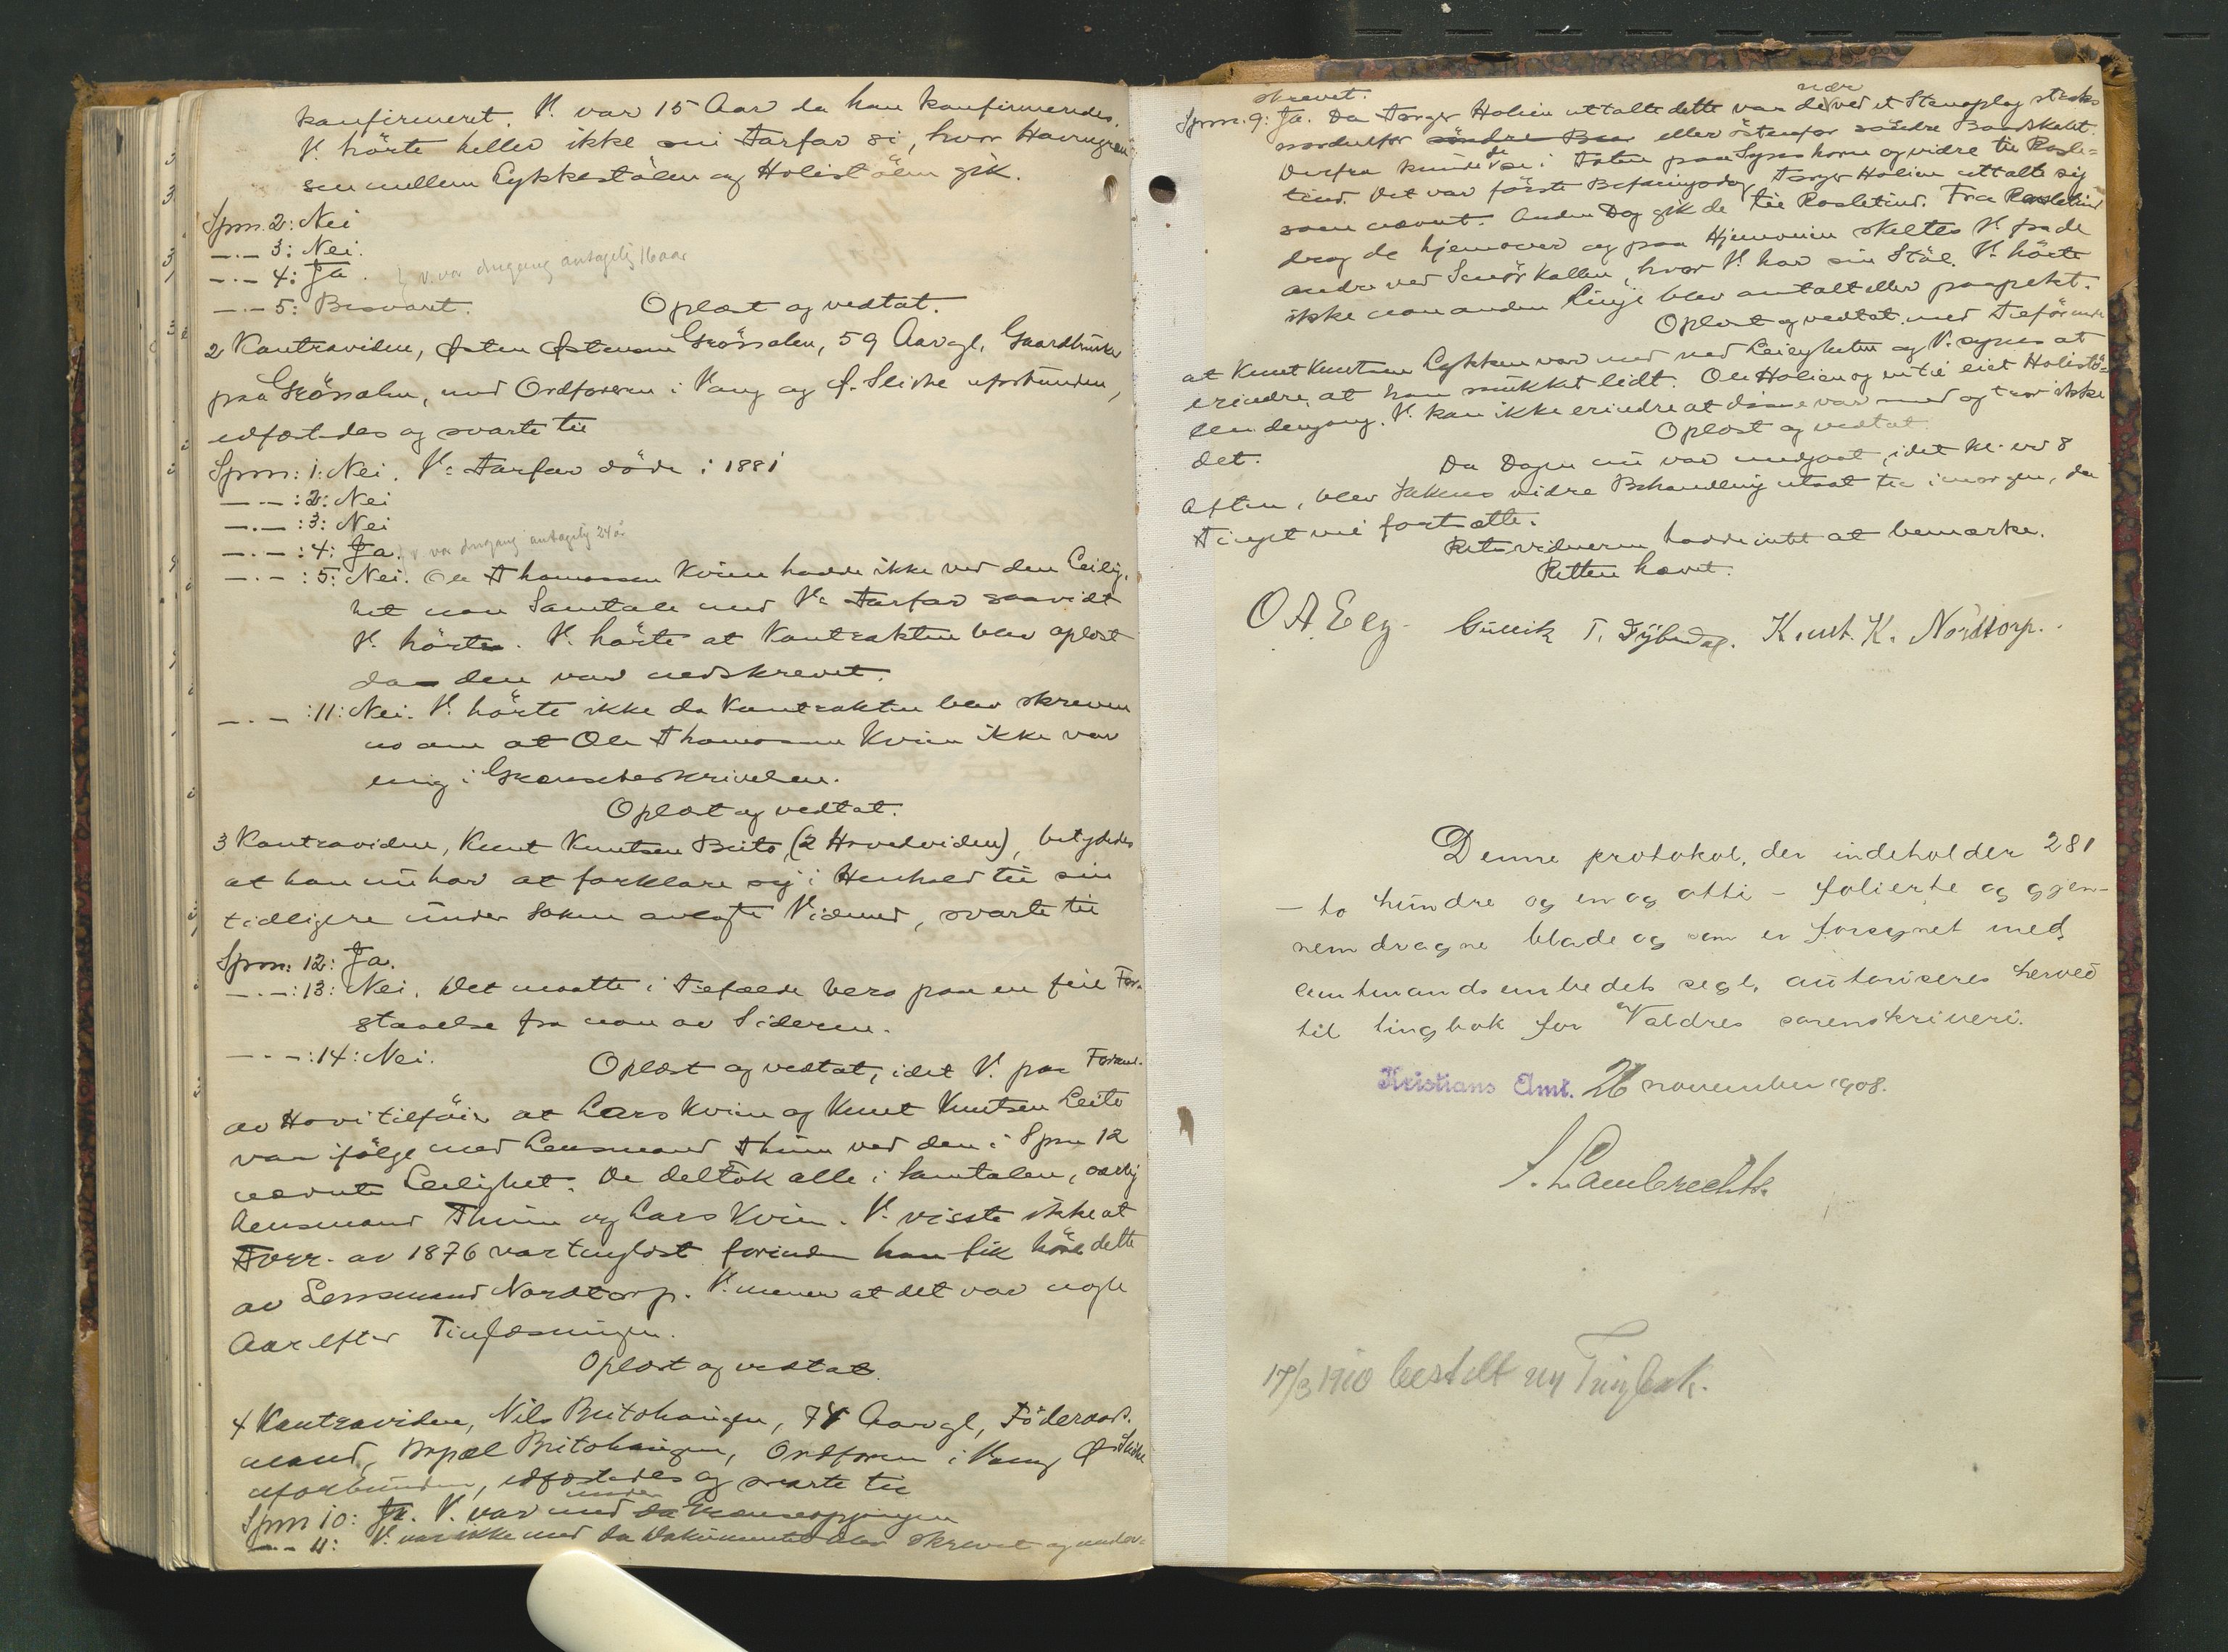 konfirmeret. V. var 15 Aar da han konfirmeredes.
V. hörte heller ikke sin Farfar si, hvor Havnegræn
sen mellem Lykkestölen og Holistölen gik.
Spm. 2: Nei
—.— 3: Nei.
—.— 4: Ja. V. var dengang antagelig 16 aar
—.— 5: Besvaret. Oplæst og vedtat.
2 Kontravidne, Østen Østensen Grössalen, 59 Aar gl. Gaardbruker
paa Grössalen, med Ordföreren i Vang og Ø. Slidre uforbunden,
edfæstedes og svarte til
Spm: 1: Nei. V.s Farfar döde i 1881
—.— :2: Nei
—.— :3: Nei
—.— :4: Ja. V. var dengang antagelig 24 år
—.— :5: Nei. Ole Thomassen Kvien hadde ikke ved den Leilig-
het noen Samtale med V.s Farfar saavidt
V. hörte. V. hörte at Kontrakten blev oplæst
da den var nedskrevet.
—.— :11: Nei. V. hörte ikke da Kontrakten blev skreven
no om at Ole Thomassen Kvien ikke var
enig i Grænsebeskrivelsen.
Oplæst og vedtat.
3 Kontravidne, Knut Knutsen Beito, (2 Hovedvidne), betydedes
at han nu har at forklare sig i Henhold til sin
tidligere under Saken avlagte Vidneed, svarte til
Spm: 12: Ja.
—.—:13: Nei. Det maatte i Tilfælde bero paa en feil For-
staaelse fra noen av Siderne.
—.—:14: Nei. Oplæst og vedtat, idet V. paa Foranl.
av Hovi tilföier at Lars Kvien og Knut Knutsen Beito
var ifölge med Lensmand Thune ved den i Spm 12
nævnte Leilighet. De deltok alle i Samtalen, særlig
Lensmand Thune og Lars Kvien. V. visste ikke at
Forr. av 1876 var tinglæst forinden han fik höre dette
av Lensmand Nordtorp. V. mener at det var nogle
Aar efter Tinglæsningen.
Oplæst og vedtat.
4 Kontravidne, Nils Beitohaugen, 74 Aar gl, Föderaads-
mand, Beitohaugen, Ordföreren i Vang Ø Slidre
uforbunden, edfæstedes og svarte til
Spm 10: Ja. V. var med under Grænseopgangen
—.— 11: V. var ikke med da Dokumentet blev skrevet og under-
skrevet.
Spm. 9: Ja. Da Torger Holien uttalte dette var de nær ved et Stenoplag straks
nordenfor söndre Baa eller östenfor söndre Baaskaret.
Derfra kunde de se i Toten paa Synshorn og vidre til Rasle-
tind. Det var första Befaringsdag Torger Holien uttalte sig
som nævnt. Anden Dag gik de til Rasletind. Fra Rasletind
drog de hjemover og paa Hjemveien skiltes V. fra de
andre ved Smörkollen, hvor V. har sin Stöl. V. hörte
ikke noen anden Linje blev omtalt eller paapekt.
Oplæst og vedtat med Tilföiende
at Knut Knutsen Lykken var med ved Leiligheten og V. synes at
erindre, at han snakket lidt. Ole Holien og en til eiet Holistö-
len dengang. V. kan ikke erindre at disse var med og tror ikke
det. Oplæst og vedtat.
Da Dagen nu var medgaat, idet kl. er 8
Aften, blev Sakens vidre Behandling utsat til imorgen, da
Tinget vil fortsætte.
Retsvidnerne hadde intet at bemærke.
Retten hævet.
O A. Elg. Gullik T. Fÿbedal. Knut. K. Nordtorp.
Denne protokol, der indeholder 281
– to hundre og en og otti – folierte og gjen-
nemdragne blade og som er forsynet med
amtmandsembedets segl, autoriseres herved
til tingbok for Valdres sorenskriveri.
Kristians Amt. 26 november 1908.
S. Lambrechts.
17/3 1910 bestilt ny Tingbok.